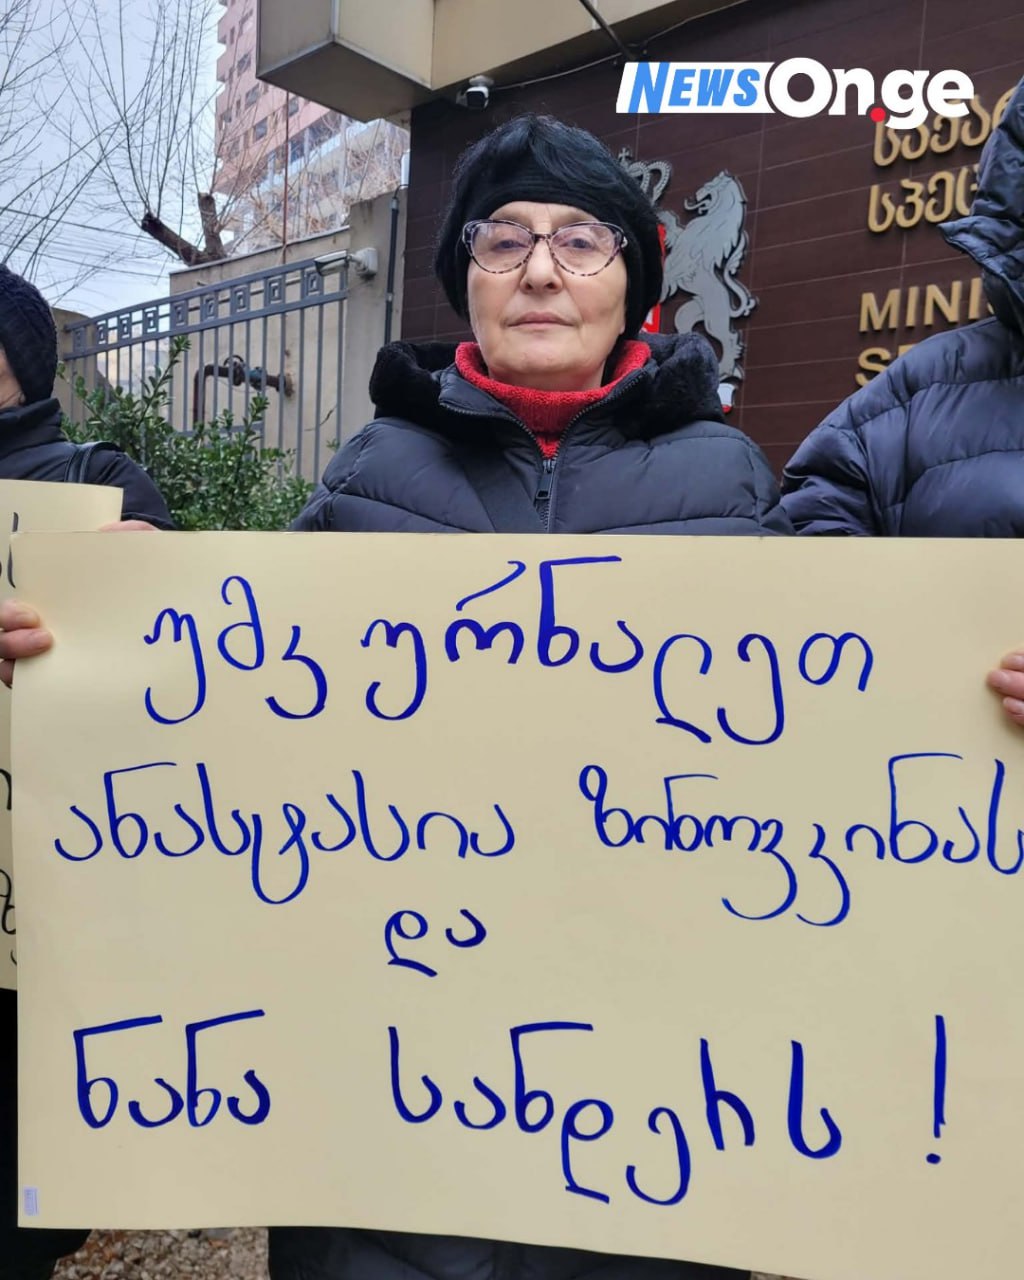 NEWSOn.ge
სპეც
MINIS
უმკურნალეთ
ანასტასია ზინოვკინას
და
ნანა სანდერს !